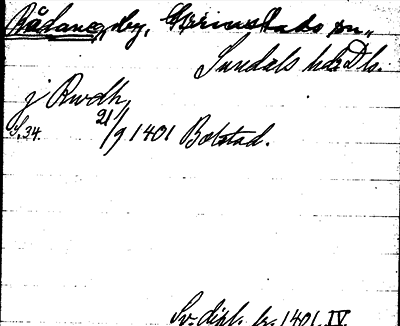 Rådane, by, Grinstads sn.,
Sundals hd. Dls.
j Rwdh,
s. 34. 21/9 1401 Bolstad.
Sv. dipl. fr. 1401, IV